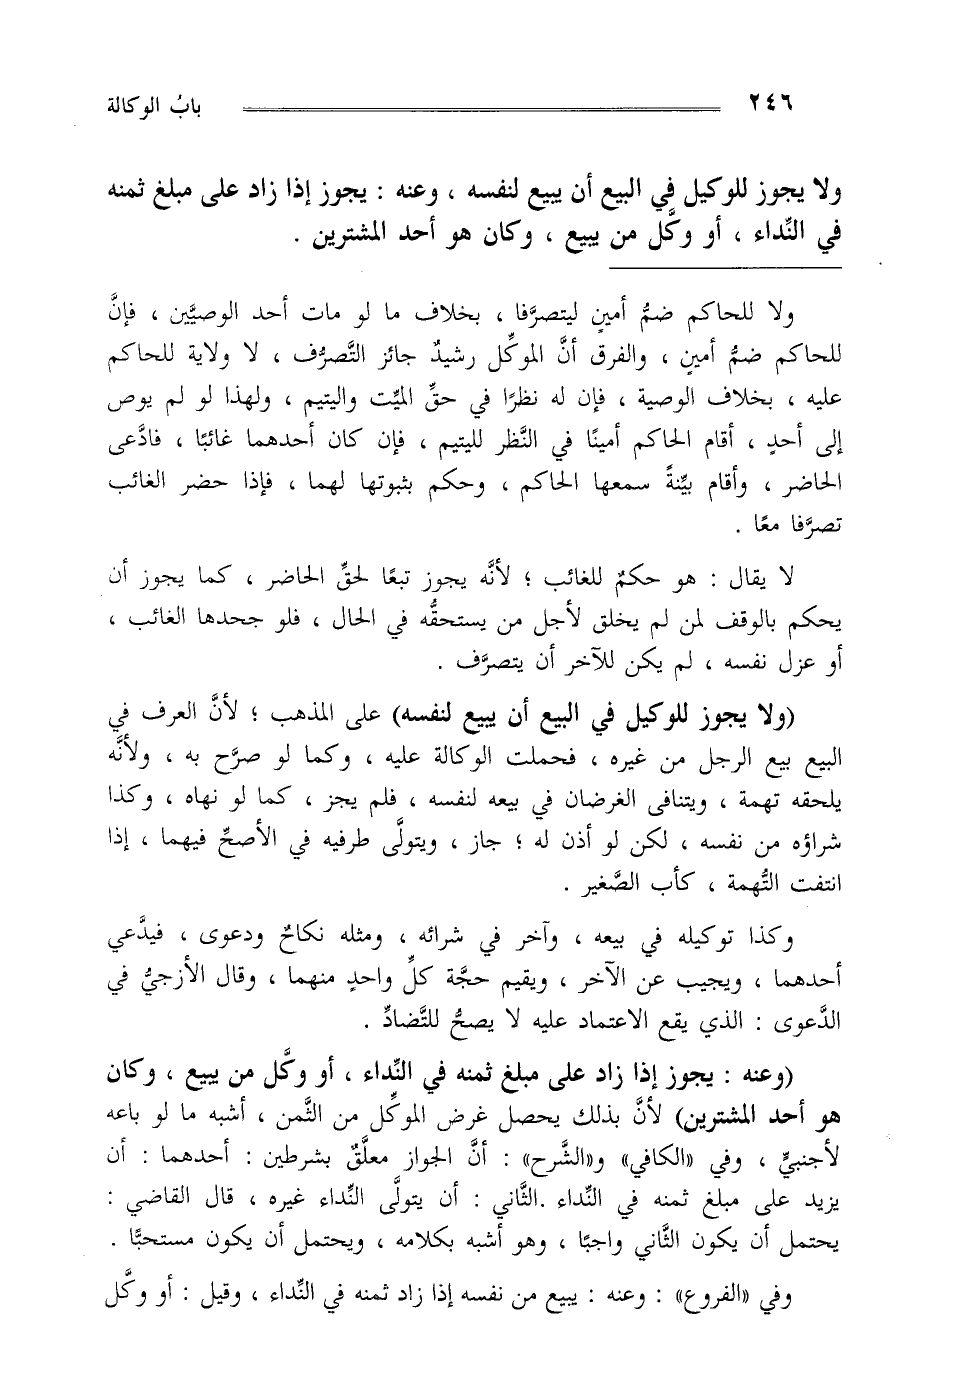 ٢٤٦ بابُ الوكالة
ولا يجوز للوكيل في البيع أن يبيع لنفسه ، وعنه : يجوز إذا زاد على مبلغ ثمنه
في النِّداء ، أو وكَّل من يبيع ، وكان هو أحد المشترين .
ولا للحاكم ضمُّ أمينٍ ليتصرَّفا ، بخلاف ما لو مات أحد الوصيَّين ، فإنَّ
للحاكم ضمُّ أمينٍ ، والفرق أنَّ الموكِّل رشيدٌ جائز التَّصرُّف ، لا ولاية للحاكم
عليه ، بخلاف الوصية ، فإن له نظرًا في حقِّ الميِّت واليتيم ، ولهذا لو لم يوص
إلى أحدٍ ، أقام الحاكم أمينًا في النَّظر لليتيم ، فإن كان أحدهما غائبًا ، فادَّعى
الحاضر ، وأقام بيِّنةً سمعها الحاكم ، وحكم بثبوتها لهما ، فإذا حضر الغائب
تصرَّفا معًا .
لا يقال : هو حكمٌ للغائب ؛ لأنَّه يجوز تبعًا لحقِّ الحاضر ، كما يجوز أن
يحكم بالوقف لمن لم يخلق لأجل من يستحقُّه في الحال ، فلو جحدها الغائب ،
أو عزل نفسه ، لم يكن للآخر أن يتصرَّف .
(ولا يجوز للوكيل في البيع أن يبيع لنفسه) على المذهب ؛ لأنَّ العرف في
البيع بيع الرجل من غيره ، فحملت الوكالة عليه ، وكما لو صرَّح به ، ولأنَّه
يلحقه تهمة ، ويتنافى الغرضان في بيعه لنفسه ، فلم يجز ، كما لو نهاه ، وكذا
شراؤه من نفسه ، لكن لو أذن له ؛ جاز ، ويتولَّى طرفيه في الأصحِّ فيهما ، إذا
انتفت التُّهمة ، كأب الصَّغير .
وكذا توكيله في بيعه ، وآخر في شرائه ، ومثله نكاحٌ ودعوى ، فيدَّعي
أحدهما ، ويجيب عن الآخر ، ويقيم حجَّة كلِّ واحدٍ منهما ، وقال الأزجيُّ في
الدَّعوى : الذي يقع الاعتماد عليه لا يصحُّ للتَّضادِّ .
(وعنه : يجوز إذا زاد على مبلغ ثمنه في النِّداء ، أو وكَّل من يبيع ، وكان
هو أحد المشترين) لأنَّ بذلك يحصل غرض الموكِّل من الثَّمن ، أشبه ما لو باعه
لأجنبيٍّ ، وفي «الكافي» و«الشَّرح» : أنَّ الجواز معلَّقٌ بشرطين : أحدهما : أن
يزيد على مبلغ ثمنه في النِّداء .الثَّاني : أن يتولَّى النِّداء غيره ، قال القاضي :
يحتمل أن يكون الثَّاني واجبًا ، وهو أشبه بكلامه ، ويحتمل أن يكون مستحبًّا .
وفي «الفروع» : وعنه : يبيع من نفسه إذا زاد ثمنه في النِّداء ، وقيل : أو وكَّل